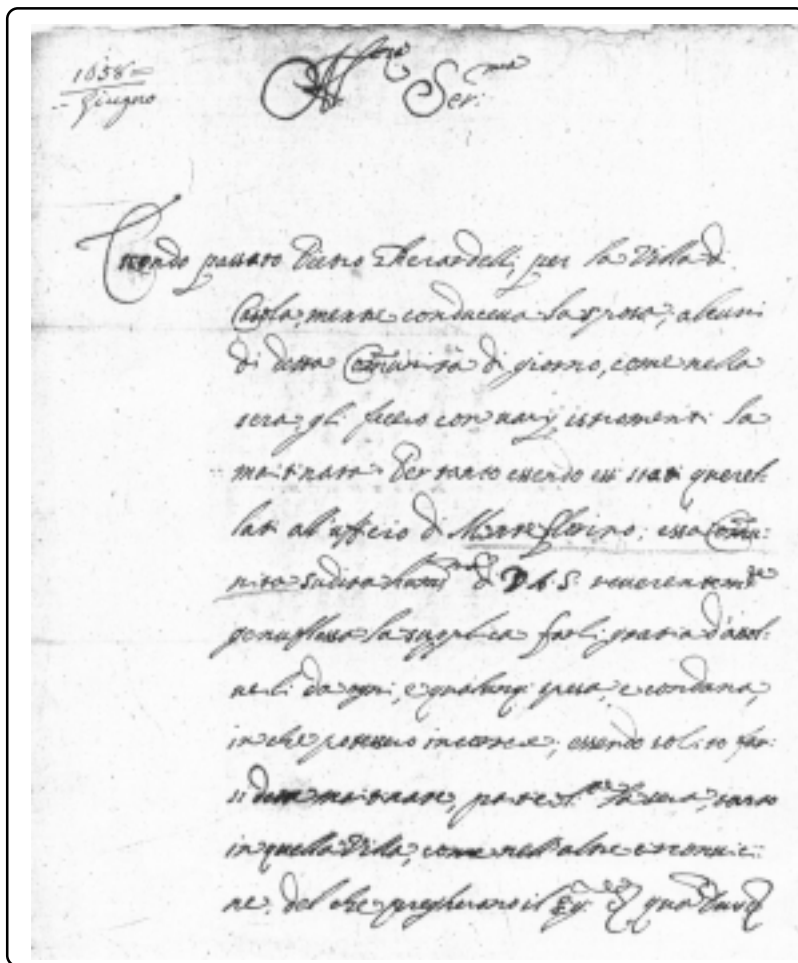 1658=
Giugno
Alt.za Ser.ma
Essendo passato Pietro Gherardelli, per la Villa di
Casola, mentre conduceua la sposa, alcuni
di detta Com̃unità di giorno, come nella
sera, gli fecero con varij istromenti la
matinata. Per tanto essendo essi stati querel-
lati all'ufficio di Montefiorino; essa Com̃u-
nità sudita hum.ma di V.A.S. reuerentem.te
genuflessa la supplica farli gratia d'assol-
uerli da ogni, e qualunq; spesa, e condana,
in che potessero incorrere, essendo solito far-
si dette matinate, la sera, tanto
in quella Villa, come nell'altre circonuici-
ne, del che pregheranno il